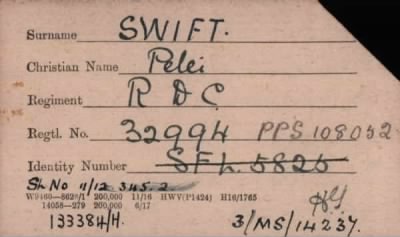 Surname SWIFT.
Christian Name Peter
Regiment R D C.
Regtl. No. 32994 PPS 108052
Identity Number SFL. 5825
Sh No 11/12 345.2
W9460—8629/1 200,000 11/16 HWV(P1424) H16/1765
14058—279 200,000 6/17
133384/H. 3/MS/14237.